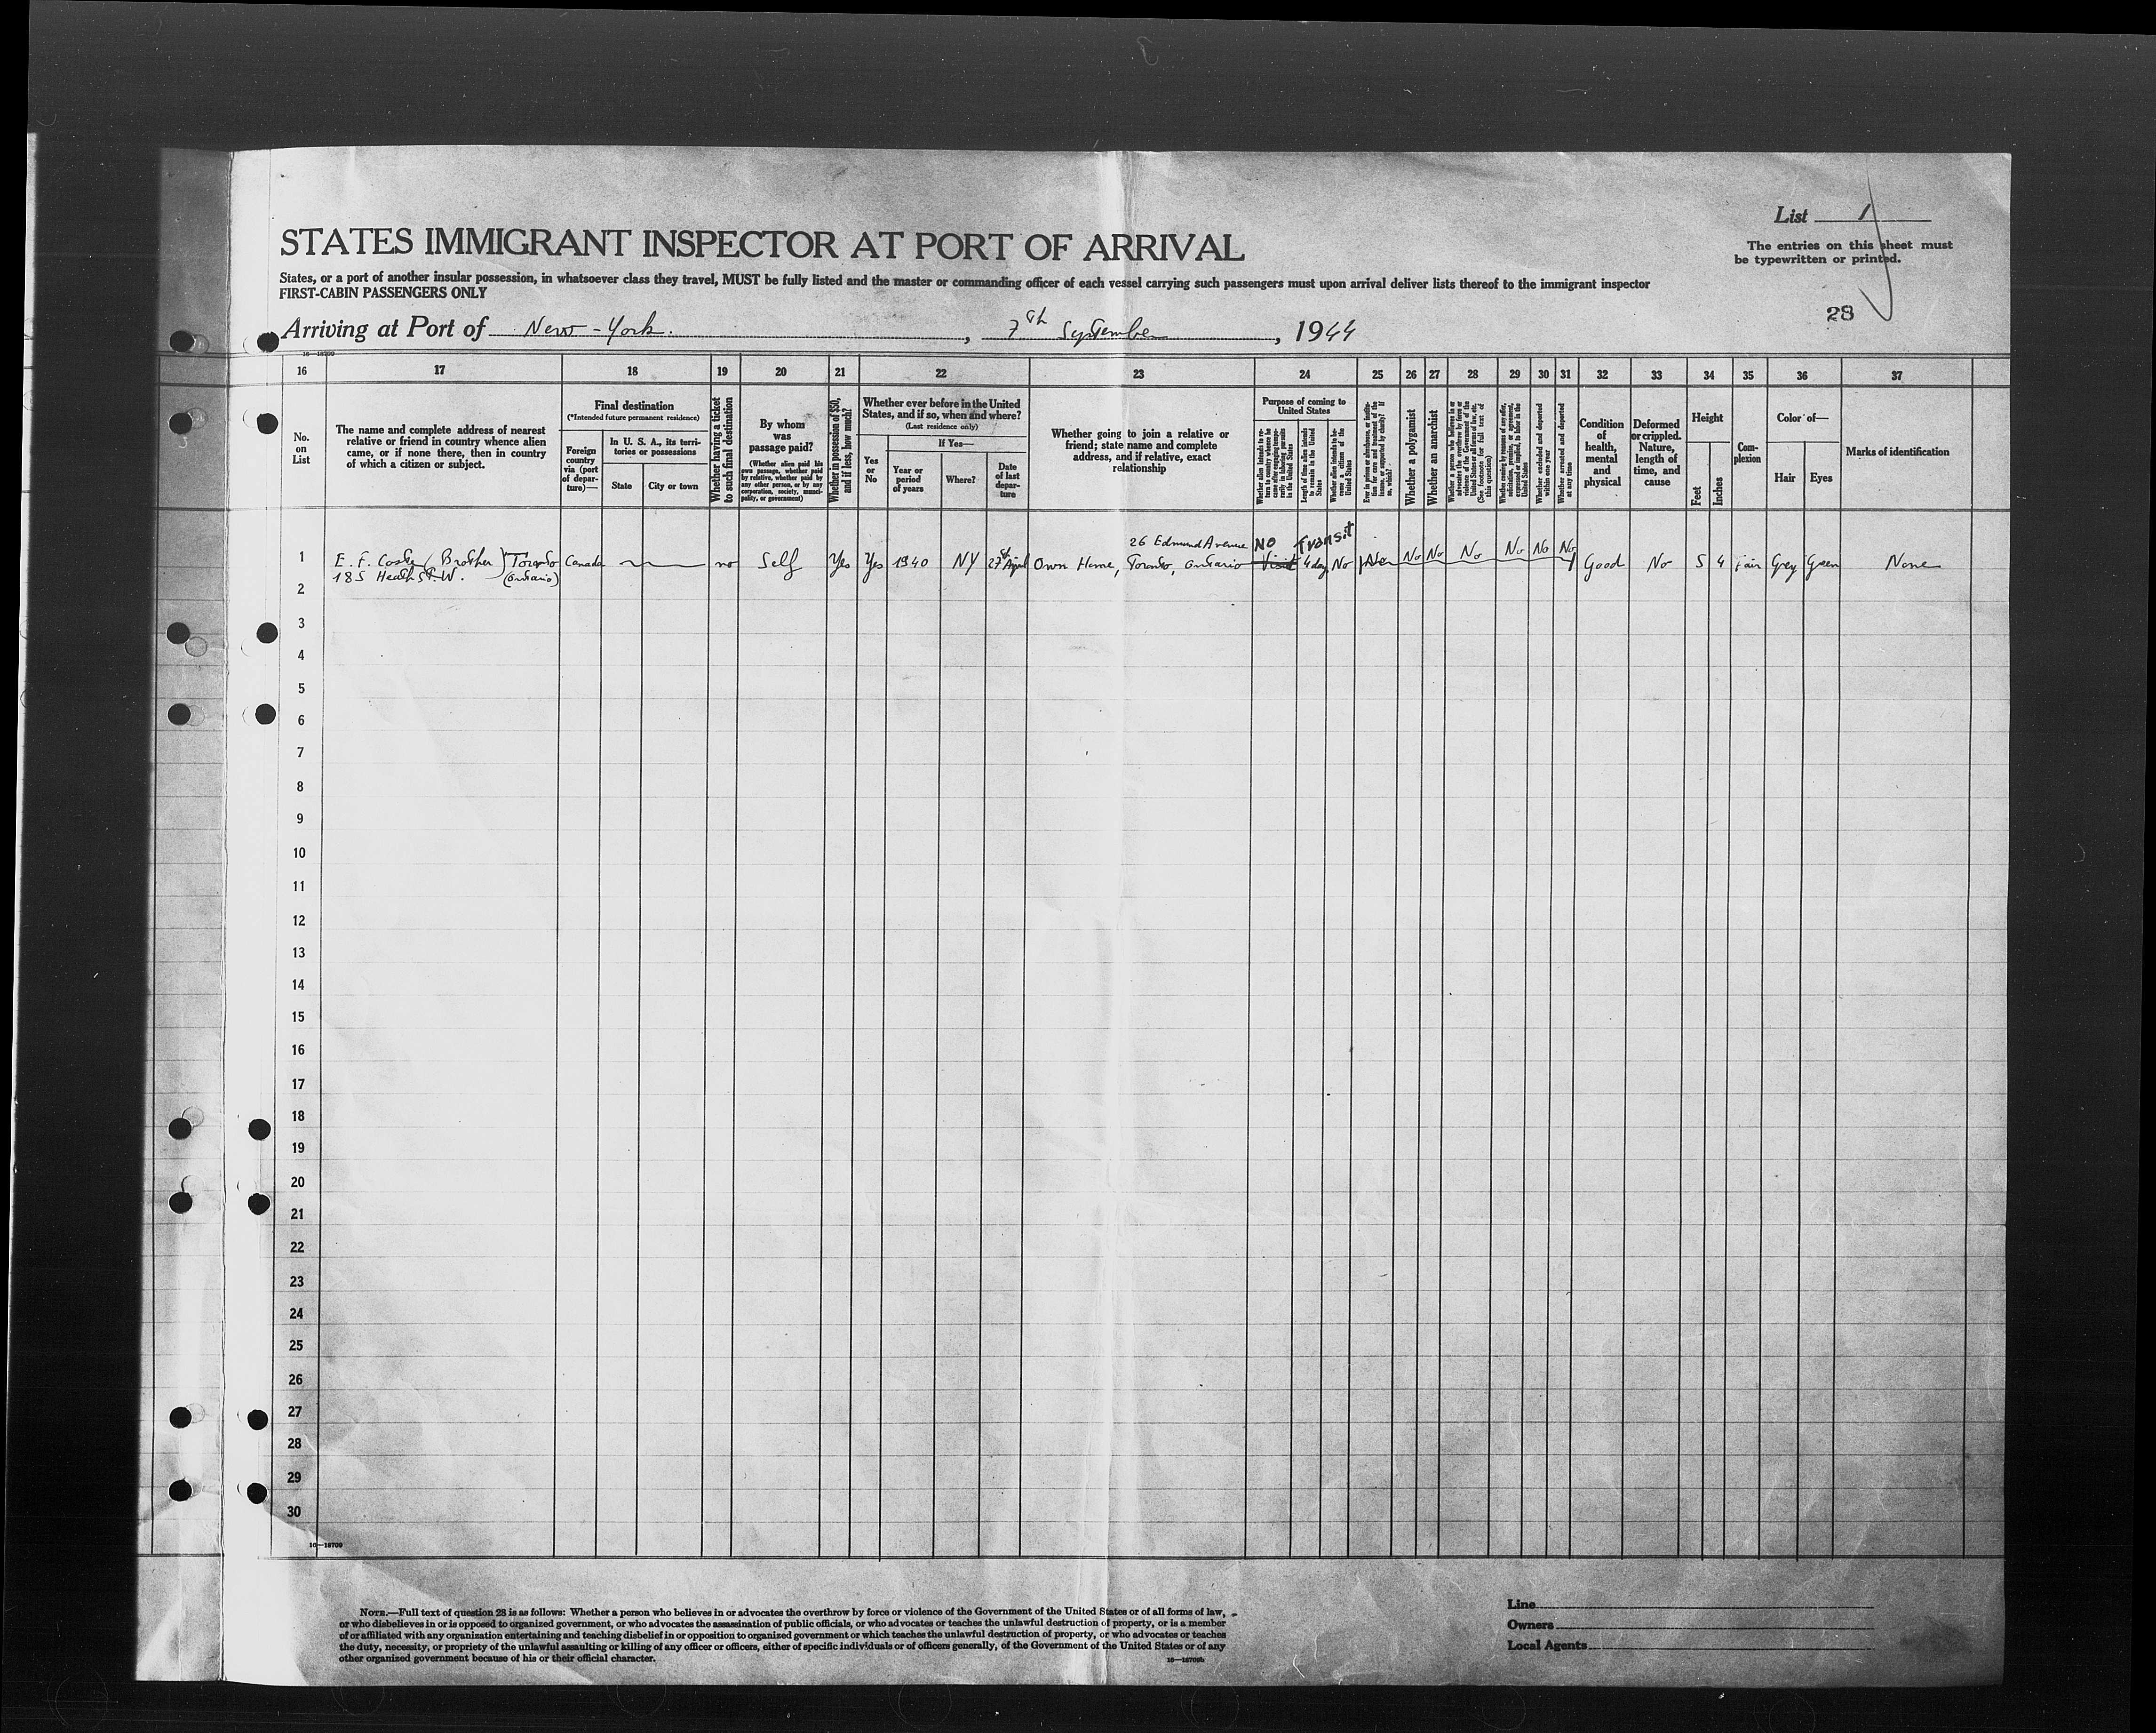 List 1
STATES IMMIGRANT INSPECTOR AT PORT OF ARRIVAL
The entries on this sheet must
be typewritten or printed.
States, or a port of another insular possession, in whatsoever class they travel, MUST be fully listed and the master or commanding officer of each vessel carrying such passengers must upon arrival deliver lists thereof to the immigrant inspector
FIRST-CABIN PASSENGERS ONLY
28
Arriving at Port of New-York. , 7th September , 1944
16—18709
16 17 18 19 20 21 22 23 24 25 26 27 28 29 30 31 32 33 34 35 36 37
No.
on
List
The name and complete address of nearest
relative or friend in country whence alien
came, or if none there, then in country
of which a citizen or subject.
Final destination
(*Intended future permanent residence)
Foreign
country
via (port
of depar-
ture)—
In U. S. A., its terri-
tories or possessions
State
City or town
Whether having a ticket
to such final destination
By whom
was
passage paid?
(Whether alien paid his
own passage, whether paid
by relative, whether paid by
any other person, or by any
corporation, society, munici-
pality, or government)
Whether in possession of $50,
and if less, how much?
Whether ever before in the United
States, and if so, when and where?
(Last residence only)
Yes
or
No
If Yes—
Year or
period
of years
Where?
Date
of last
depar-
ture
Whether going to join a relative or
friend; state name and complete
address, and if relative, exact
relationship
Purpose of coming to
United States
Whether alien intends to re-
turn to country whence he
came after engaging tempo-
rarily in laboring pursuits
in the United States
Length of time alien intends
to remain in the United
States
Whether alien intends to be-
come a citizen of the
United States
Ever in prison or almshouse, or institu-
tion for care and treatment of the
insane, or supported by charity? If
so, which?
Whether a polygamist
Whether an anarchist
Whether a person who believes in or
advocates the overthrow by force or
violence of the Government of the
United States or all forms of law, etc.
(See footnote for full text of
this question)
Whether coming by reason of any offer,
solicitation, promise, or agreement,
expressed or implied, to labor in the
United States
Whether excluded and deported
within one year
Whether arrested and deported
at any time
Condition
of
health,
mental
and
physical
Deformed
or crippled.
Nature,
length of
time, and
cause
Height
Feet
Inches
Com-
plexion
Color of—
Hair
Eyes
Marks of identification
26 Edmund Avenue NO Transit
1 E. F. (Brother) Toronto Canada no Self Yes Yes 1940 NY 27 April Own Home, Toronto, Ontario Visit 4 day No No No No No No No No Good No 5 4 Fair Grey Green None
185 Heath St. W. (Ontario)
2
3
4
5
6
7
8
9
10
11
12
13
14
15
16
17
18
19
20
21
22
23
24
25
26
27
28
29
30
16—18709
NOTE.—Full text of question 28 is as follows: Whether a person who believes in or advocates the overthrow by force or violence of the Government of the United States or of all forms of law,
or who disbelieves in or is opposed to organized government, or who advocates the assassination of public officials, or who advocates or teaches the unlawful destruction of property, or is a member
of or affiliated with any organization entertaining and teaching disbelief in or opposition to organized government or which teaches the unlawful destruction of property, or who advocates or teaches
the duty, necessity, or propriety of the unlawful assaulting or killing of any officer or officers, either of specific individuals or of officers generally, of the Government of the United States or of any
other organized government because of his or their official character.
16—18709b
Line
Owners
Local Agents